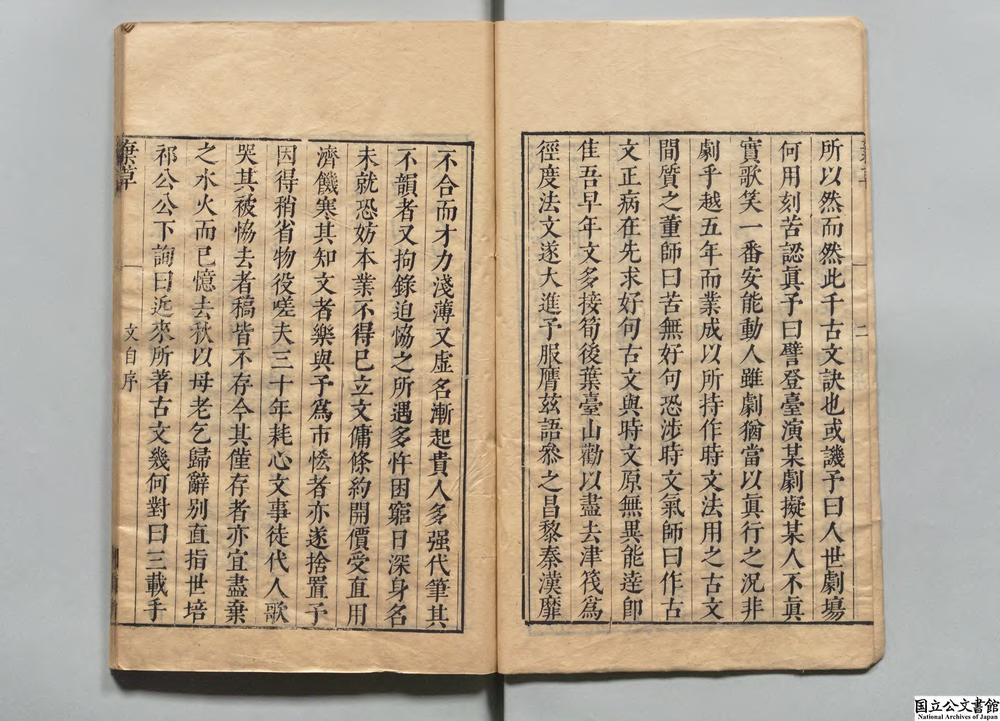 所以然而然此千古文訣也或譏予曰人世劇塲
何用刻苦認眞予曰譬登臺演某劇擬某人不眞
實歌笑一番安能動人雖劇猶當以眞行之況非
劇乎越五年而業成以所持作時文法用之古文
間質之董師曰苦無好句恐涉時文氣師曰作古
文正病在先求好句古文與時文原無異能達卽
佳吾早年文多接筍後葉臺山勸以盡去津筏爲
徑度法文遂大進予服膺兹語參之昌黎秦漢靡
二
不合而才力淺薄又虛名漸起貴人多强代筆其
不韻者又拘錄迫恊之所遇多忤困窮日深身名
未就恐妨本業不得已立文傭條約開價受直用
濟饑寒其知文者樂與予爲市恡者亦遂捨置予
因得稍省物役嗟夫三十年耗心文事徒代人歌
哭其被恊去者稿皆不存今其僅存者亦宜盡棄
之水火而已憶去秋以母老乞歸辭别直指世培
祁公公下詢曰近來所著古文幾何對曰三載手
棄草
文自序
国立公文書館
National Archives of Japan